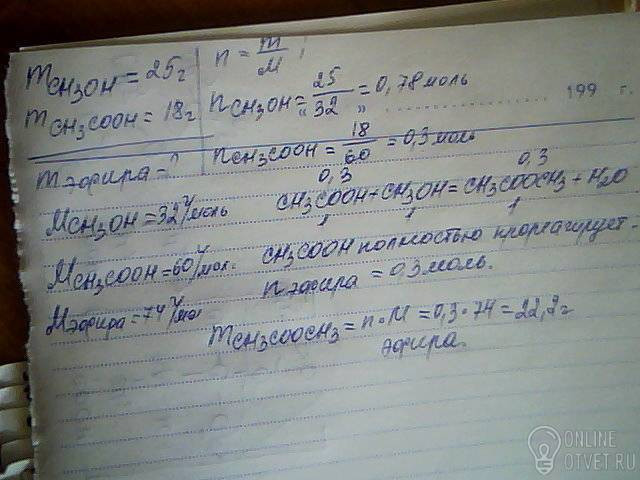 mCH₃OH = 25г
mCH₃COOH = 18г
mэфира = ?
MCH₃OH = 32 г/моль
MCH₃COOH = 60 г/мол.
Mэфира = 74 г/мол
n = m/M ;
nCH₃OH = 25/32 = 0,78 моль
" "
199 г.
nCH₃COOH = 18/60 = 0,3 моль
0,3 0,3
CH₃COOH + CH₃OH = CH₃COOCH₃ + H₂O
1 1 1
CH₃COOH полностью прореагирует.
nэфира = 0,3 моль.
mCH₃COOCH₃ = n·M = 0,3·74 = 22,2г
эфира.
ONLINE
OTVET.RU